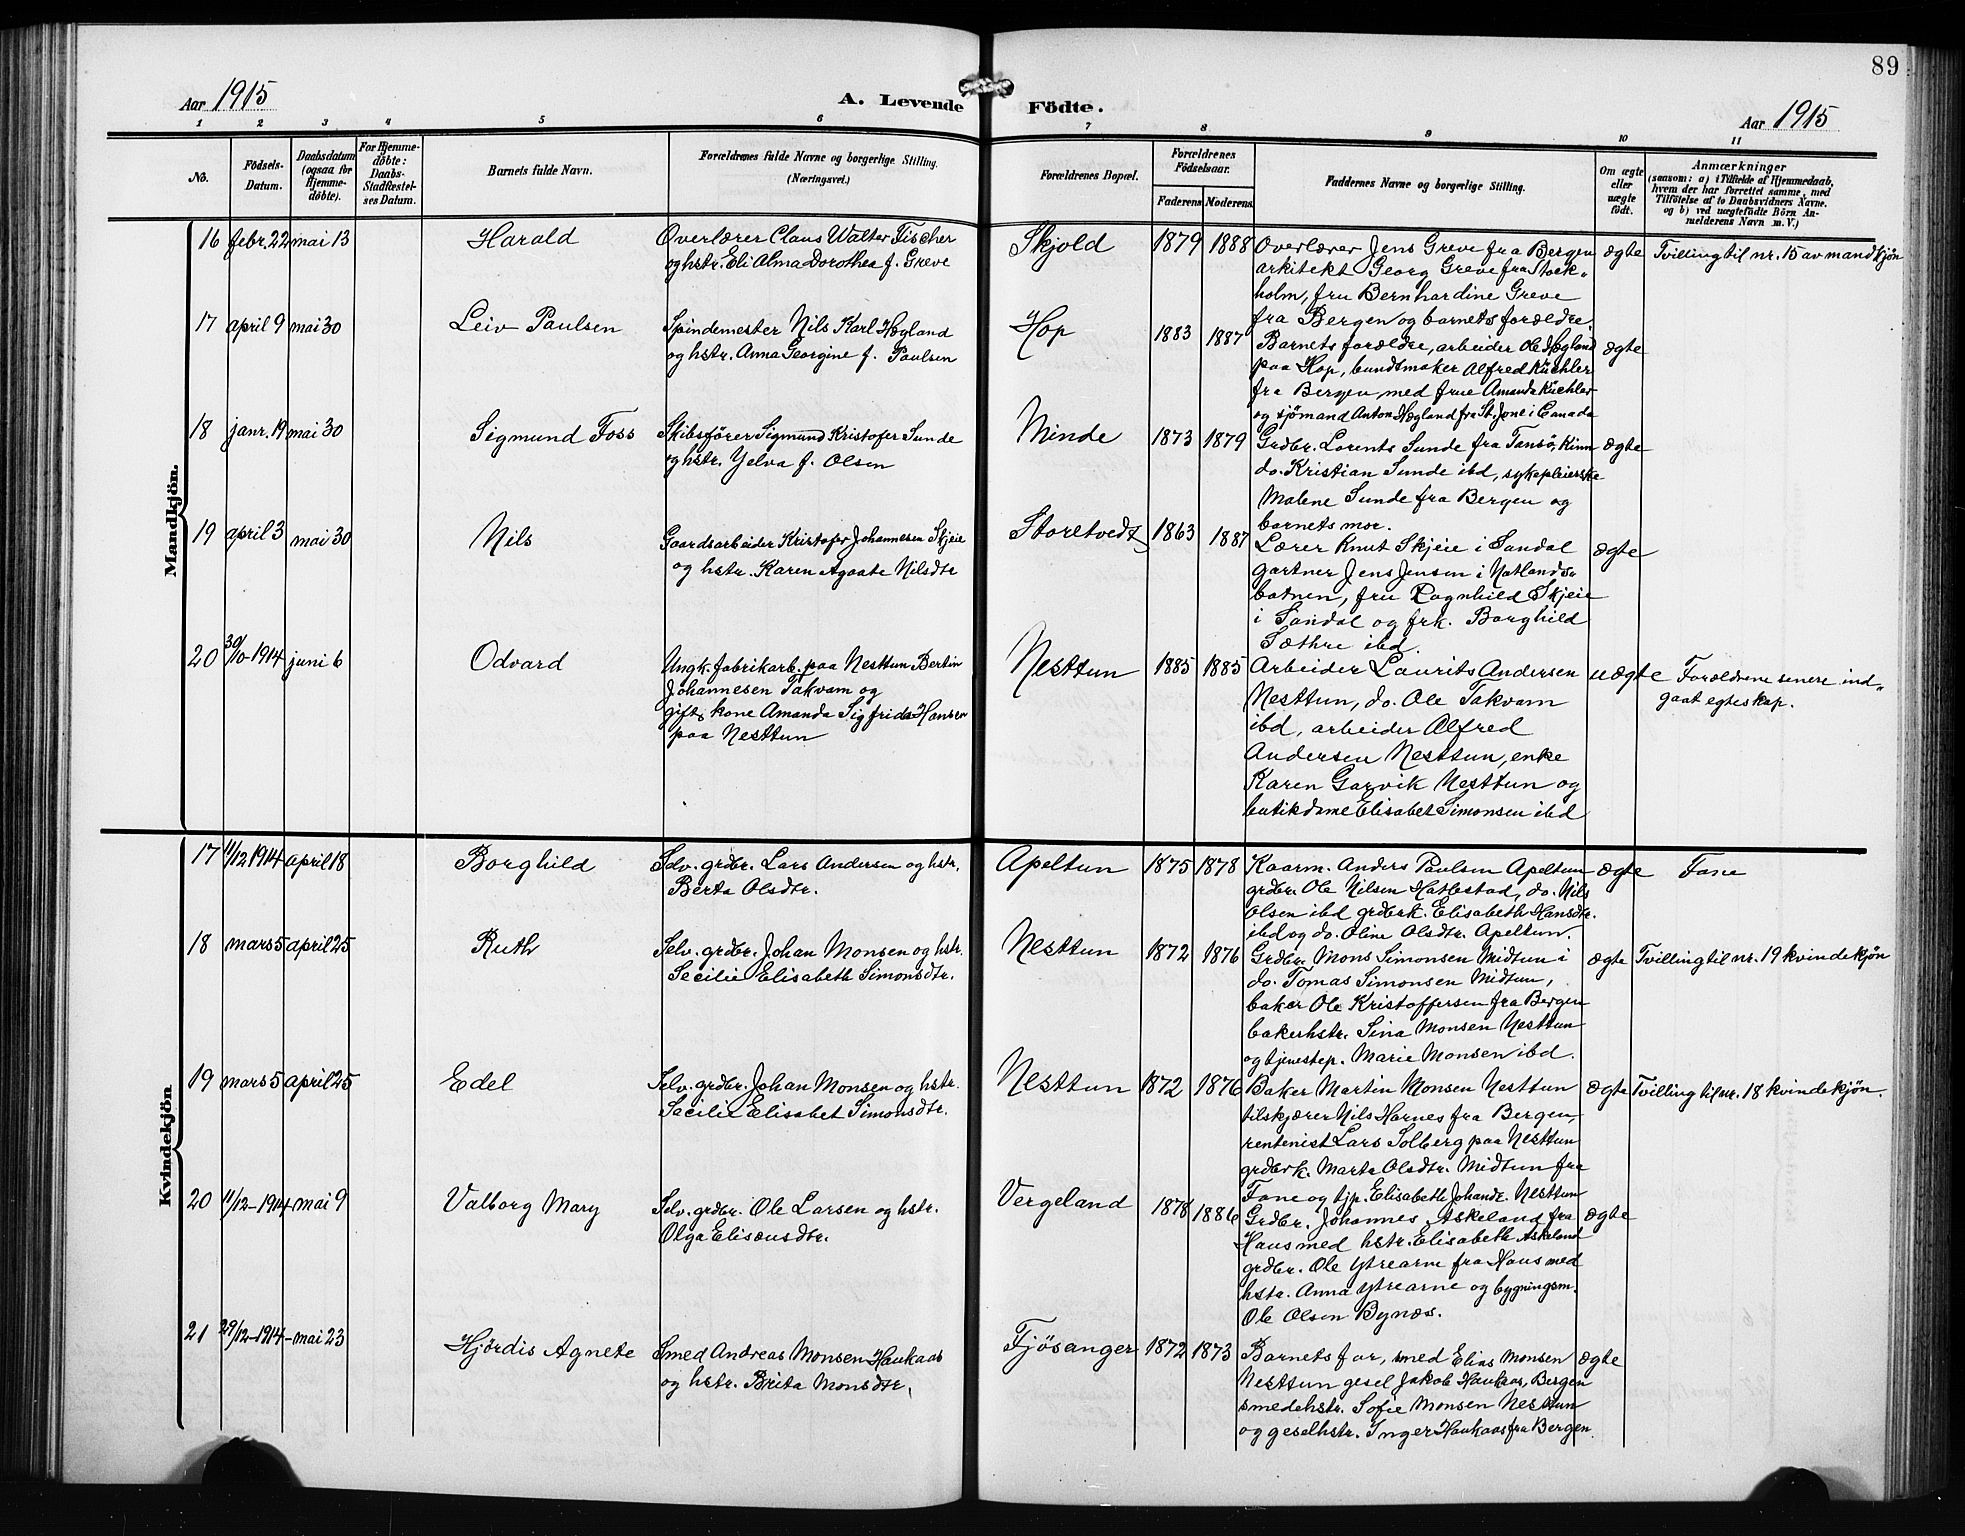 89
Aar 1915
A. Levende Födte.
Aar 1915
1 2 3 4 5 6 7 8 9 10 11
No.
Födsels-
Datum.
Daabsdatum
(ogsaa for
Hjemme-
døbte).
For Hjemme-
døbte:
Daabs-
Stadfæstel-
ses Datum.
Barnets fulde Navn.
Forældrenes fulde Navne og borgerlige Stilling.
(Næringsvei.)
Forældrenes Bopæl.
Forældrenes
Födselsaar.
Faderens Moderens
Faddernes Navne og borgerlige Stilling.
Om ægte
eller
uægte
født.
Anmærkninger
(saasom: a) i Tilfælde af Hjemmedaab,
hvem der har forrettet samme, med
Tilföielse af to Daabsvidners Navne.
og b) ved uægtefödte Börn An-
melderens Navn m. V.)
Mandkjön.
16 febr. 22 mai 13
Harald
Overlærer Claus Walter Fischer
og hstr. Eli Alma Dorothea f. Greve
Skjold
1879 1888
Overlærer Jens Greve fra Bergen
arkitekt Georg Greve fra Stock-
holm, fru Bernhardine Greve
fra Bergen og barnets forældre.
ægte
Tvilling til nr. 15 av mandkjön
17 april 9 mai 30
Leiv Paulsen
Spindemester Nils Karl Høgland
og hstr. Anna Georgine f. Paulsen
Hop
1883 1887
Barnets forældre, arbeider Ole Høgland
paa Hop, bundtmaker Alfred Küchler
fra Bergen med frue Amanda Küchler
og sjömand Anton Høgland fra St. Jone i Canada
ægte
18 janr. 19 mai 30
Sigmund Foss
Skibsfører Sigmund Kristofer Sunde
og hstr. Yelva f. Olsen
Minde
1873 1879
Grdbr. Lorents Sunde fra Tansö, Kinn
do. Kristian Sunde ibd, sykepleierske
Malene Sunde fra Bergen og
barnets mor.
ægte
19 april 3 mai 30
Nils
Gaardsarbeider Kristofer Johannesen Skjeie
og hstr. Karen Agaate Nilsdtr
Storetvedt
1863 1887
Lærer Knut Skjeie i Sandal
gartner Jens Jensen i Natlands-
botnen, fru Ragnhild Skjeie
i Sandal og frk. Borghild
Sæthre ibd.
ægte
20 30/10-1914 juni 6
Odvard
Ungk. fabrikarb. paa Nesttun Bertin
Johannesen Takvam og
gift kone Amanda Sigfrida Hansen
paa Nesttun
Nesttun
1885 1885
Arbeider Laurits Andersen
Nesttun, do. Ole Takvam
ibd, arbeider Alfred
Andersen Nesttun, enke
Karen Garvik Nesttun og
butikdame Elisabet Simonsen ibd
uægte
Forældrene senere ind-
gaat egteskap.
Kvindekjön
17 11/12 1914 april 18
Borghild
Selv. grdbr. Lars Andersen og hstr.
Berta Olsdtr.
Apeltun
1875 1878
Kaarm. Anders Paulsen Apeltun
grdbr. Ole Nilsen Hatlestad, do. Nils
Olsen ibd grdbrk. Elisabeth Hansdtr.
ibd og do. Oline Olsdtr. Apeltun
ægte
Fane
18 mars 5 april 25
Ruth
Selv. grdbr. Johan Monsen og hstr.
Secilie Elisabeth Simonsdtr.
Nesttun
1872 1876
Grdbr. Mons Simonsen Midtun i
do. Tomas Simonsen Midtun,
baker Ole Kristoffersen fra Bergen
bakerhstr. Sina Monsen Nesttun
og tjenestep. Marie Monsen ibd.
ægte
Tvilling til nr. 19 kvindekjön
19 mars 5 april 25
Edel
Selv. grdbr. Johan Monsen og hstr.
Secilie Elisabet Simonsdtr.
Nesttun
1872 1876
Baker Martin Monsen Nesttun
tilskjærer Nils Harnes fra Bergen,
rentenist Lars Solberg paa Nesttun
grdbrk. Marta Olsdtr. Midtun fra
Fane og tjp. Elisabeth Johandr. Nesttun
ægte
Tvilling til nr. 18 kvindekjön.
20 11/12-1914 mai 9
Valborg Mary
Selv. grdbr. Ole Larsen og hstr.
Olga Eliseusdtr.
Vergeland
1878 1886
Grdbr. Johannes Askeland fra
Haus med hstr. Elisabeth Askeland
grdbr. Ole Ytrearne fra Haus med
hstr. Anna Ytrearne og bygningsm.
Ole Olsen Bynæs.
ægte
21 29/12-1914 mai 23
Hjördis Agnete
Smed Andreas Monsen Haukaas
og hstr. Brita Monsdtr.
Fjösanger
1872 1873
Barnets far, smed Elias Monsen
Nesttun gesel Jakob Haukaas, Bergen
smedehstr. Sofie Monsen Nesttun
og geselhstr. Inger Haukaas fra Bergen.
ægte